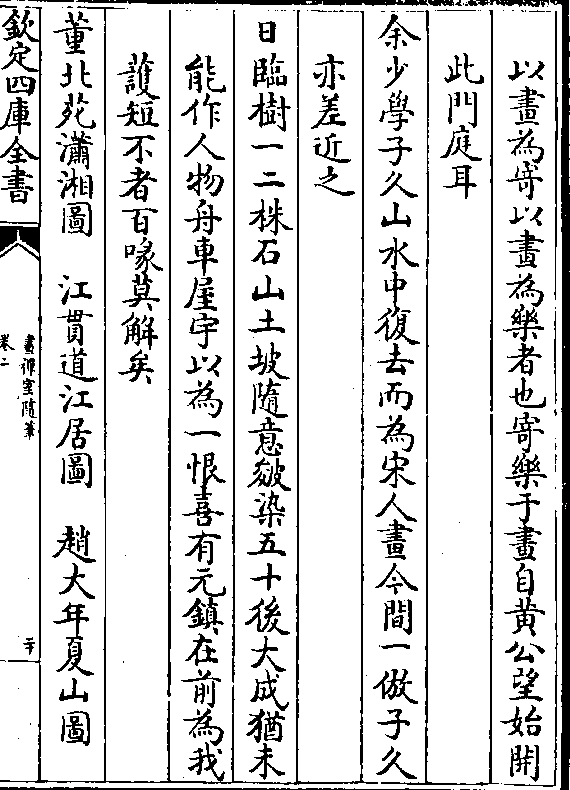 以畫為寄以畫為樂者也寄樂于畫自黄公望始開
此門庭耳
余少學子久山水中復去而為宋人畫今間一倣子久
亦差近之
日臨樹一二株石山土坡隨意皴染五十後大成猶未
能作人物舟車屋宇以為一恨喜有元鎮在前為我
護短不者百喙莫解矣
董北苑瀟湘圖　江貫道江居圖　趙大年夏山圖
欽定四庫全書
畫禪室隨筆
卷二
二十